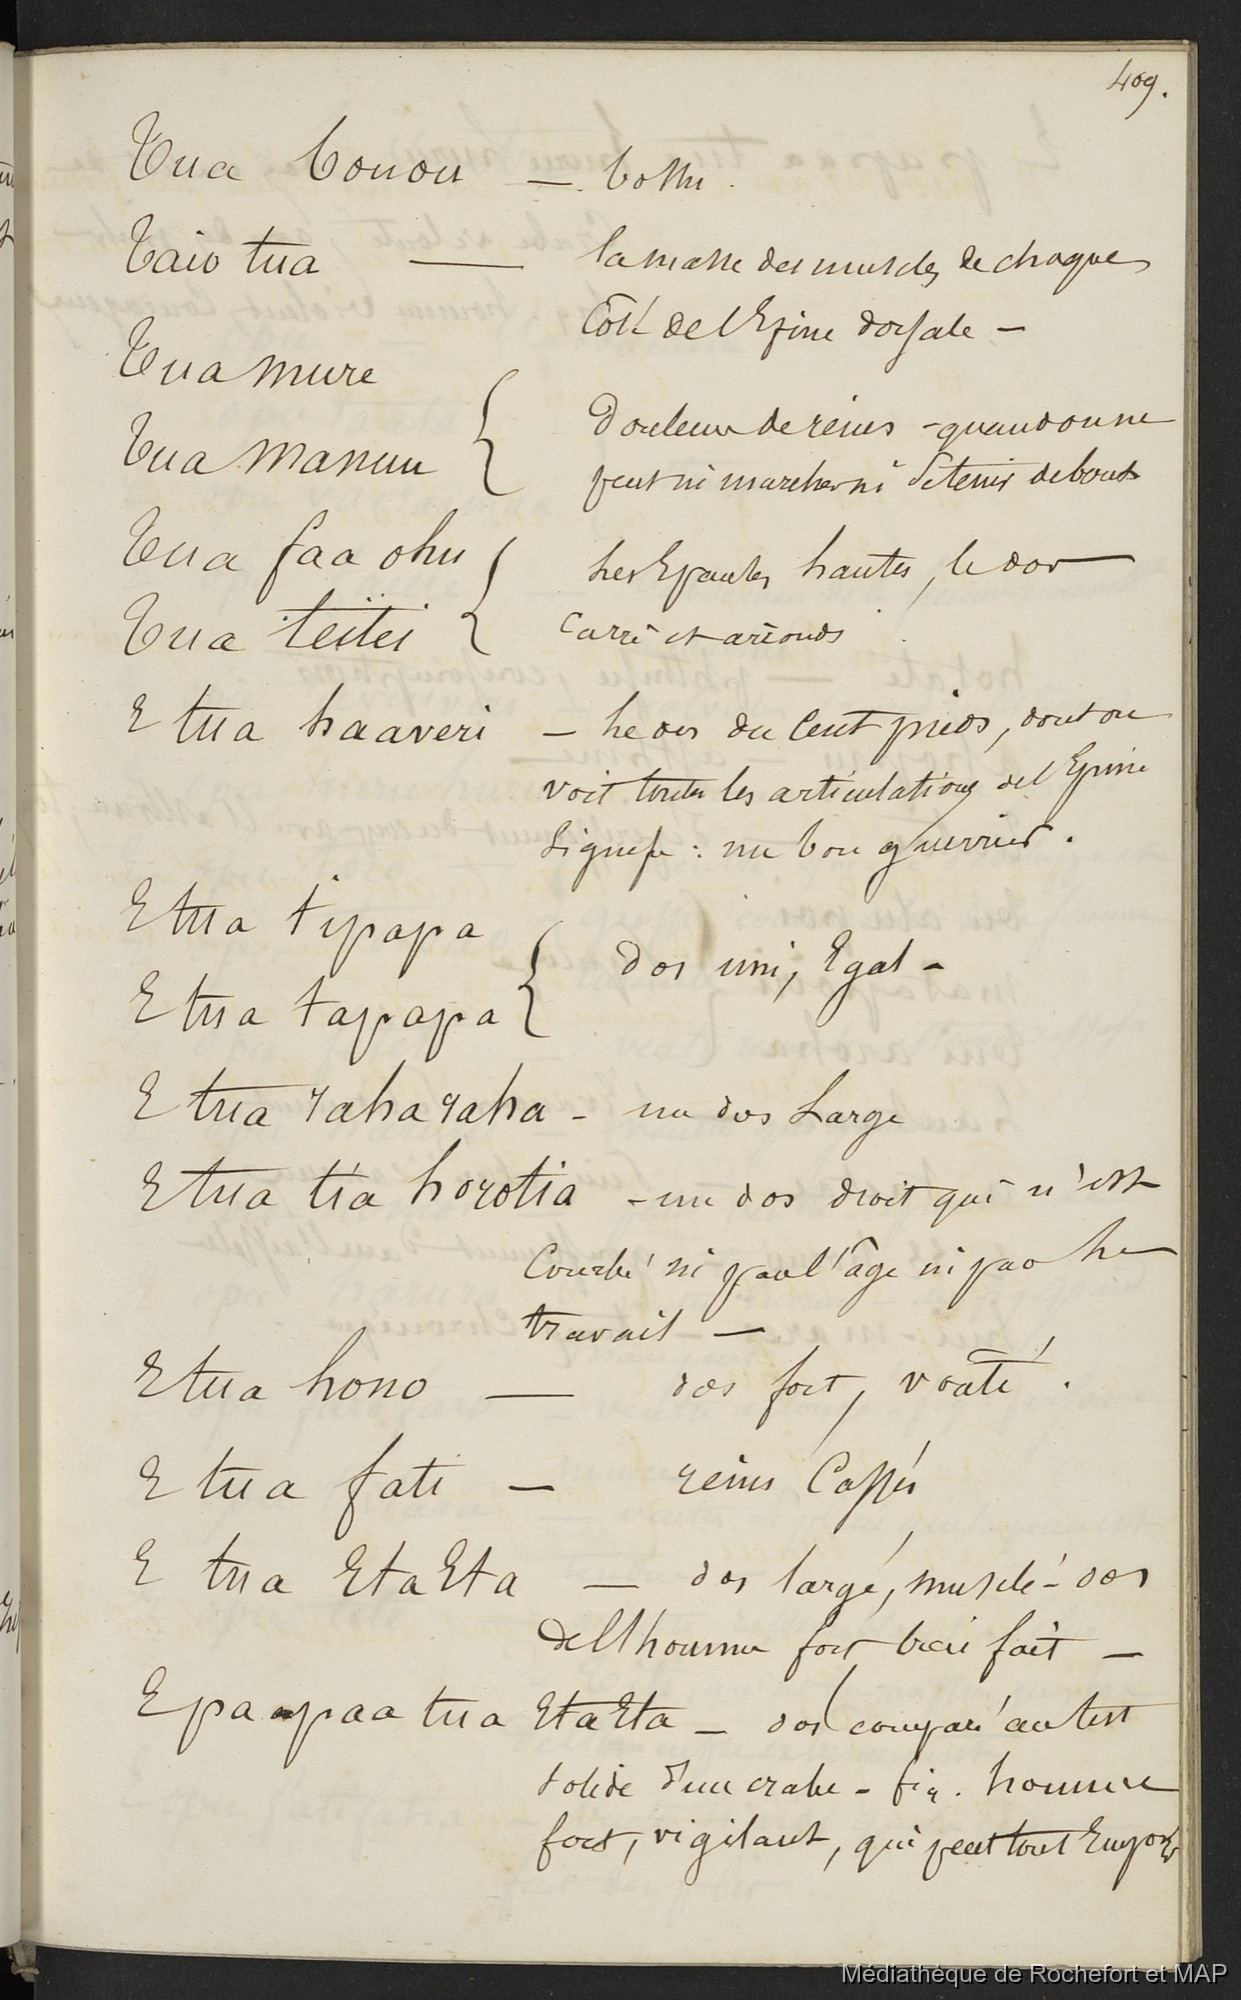 409.
Tua Tououu — bossu.
Taio tua — la masse des muscles de chaque
Côté de l'Epine dorsale —
Tua mure
Tua manuu { Douleur de reins - quand on ne
peut ni marcher ni se tenir debout
Tua faa ohu { les Epaules hautes, le dos
Tua teïtei carré et arrondi
E tua haaveri — le dos du Cent pieds, dont on
voit toutes les articulations de l'Epine
Signifie : un bon guerrier.
E tua tipapa
E tua tapapa { dos uni, Egal -
E tua raharaha - un dos Large
E tua tia horotia - un dos droit qui n'est
Courbé ni par l'âge ni par le
travail —
E tua hono — dos fort, voûté.
E tua fati — reins Cassés
E tua EtaEta — dos large, musclé - dos
de l'homme fort bien fait —
E paapaa tua EtaEta — dos comparé au test
solide d'un crabe - fig. homme
fort, vigilant, qui peut tout Emporter
Médiathèque de Rochefort et MAP